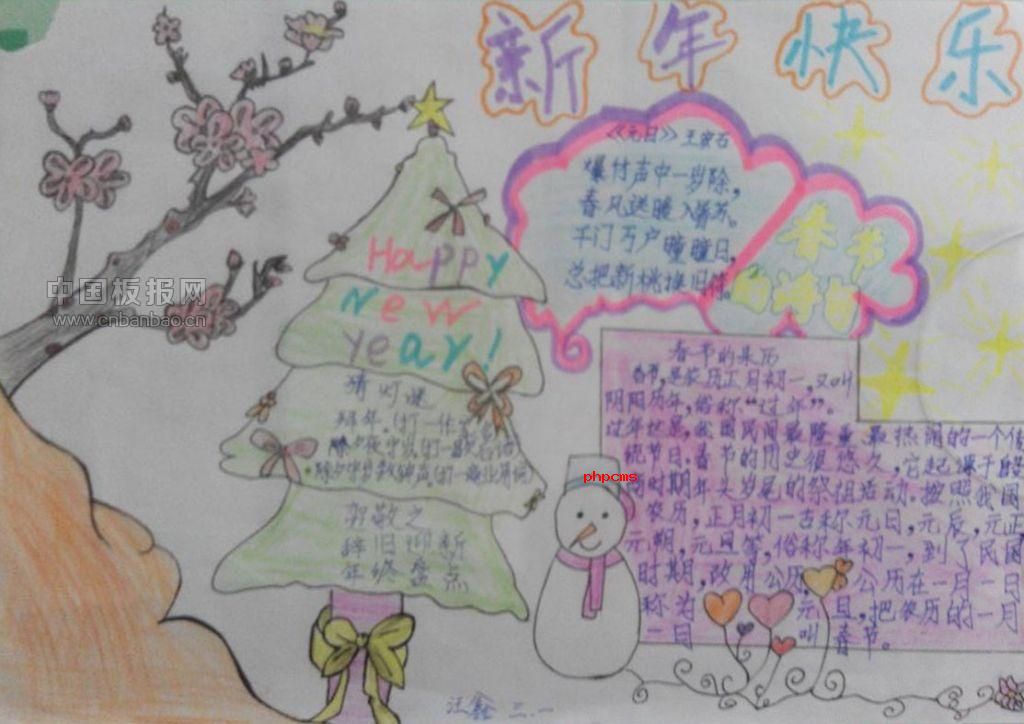 新年快乐
《元日》王安石
爆竹声中一岁除,
春风送暖入屠苏。
千门万户曈曈日,
总把新桃换旧符。
春节
Happy
New
Year!
猜灯谜
拜年。(打一
贺敬之
辞旧迎新
年终盘点
春节的来历
春节,是农历正月初一,又叫
阴历年,俗称“过年”。
过年
我国民间最隆重、最热闹的一个传
统节日。春节的历史很悠久,它起源于殷
商时期年头岁尾的祭祖活动。按照我国
农历,正月初一古称元日,元辰,元正
元朔,元旦等,俗称年初一,到了民国
时期,改用公历,公历在一月一日
称为元旦,把农历的一月
一日叫春节。
汪鑫 二.一
中国板报网
www.cnbanbao.cn
phpcms